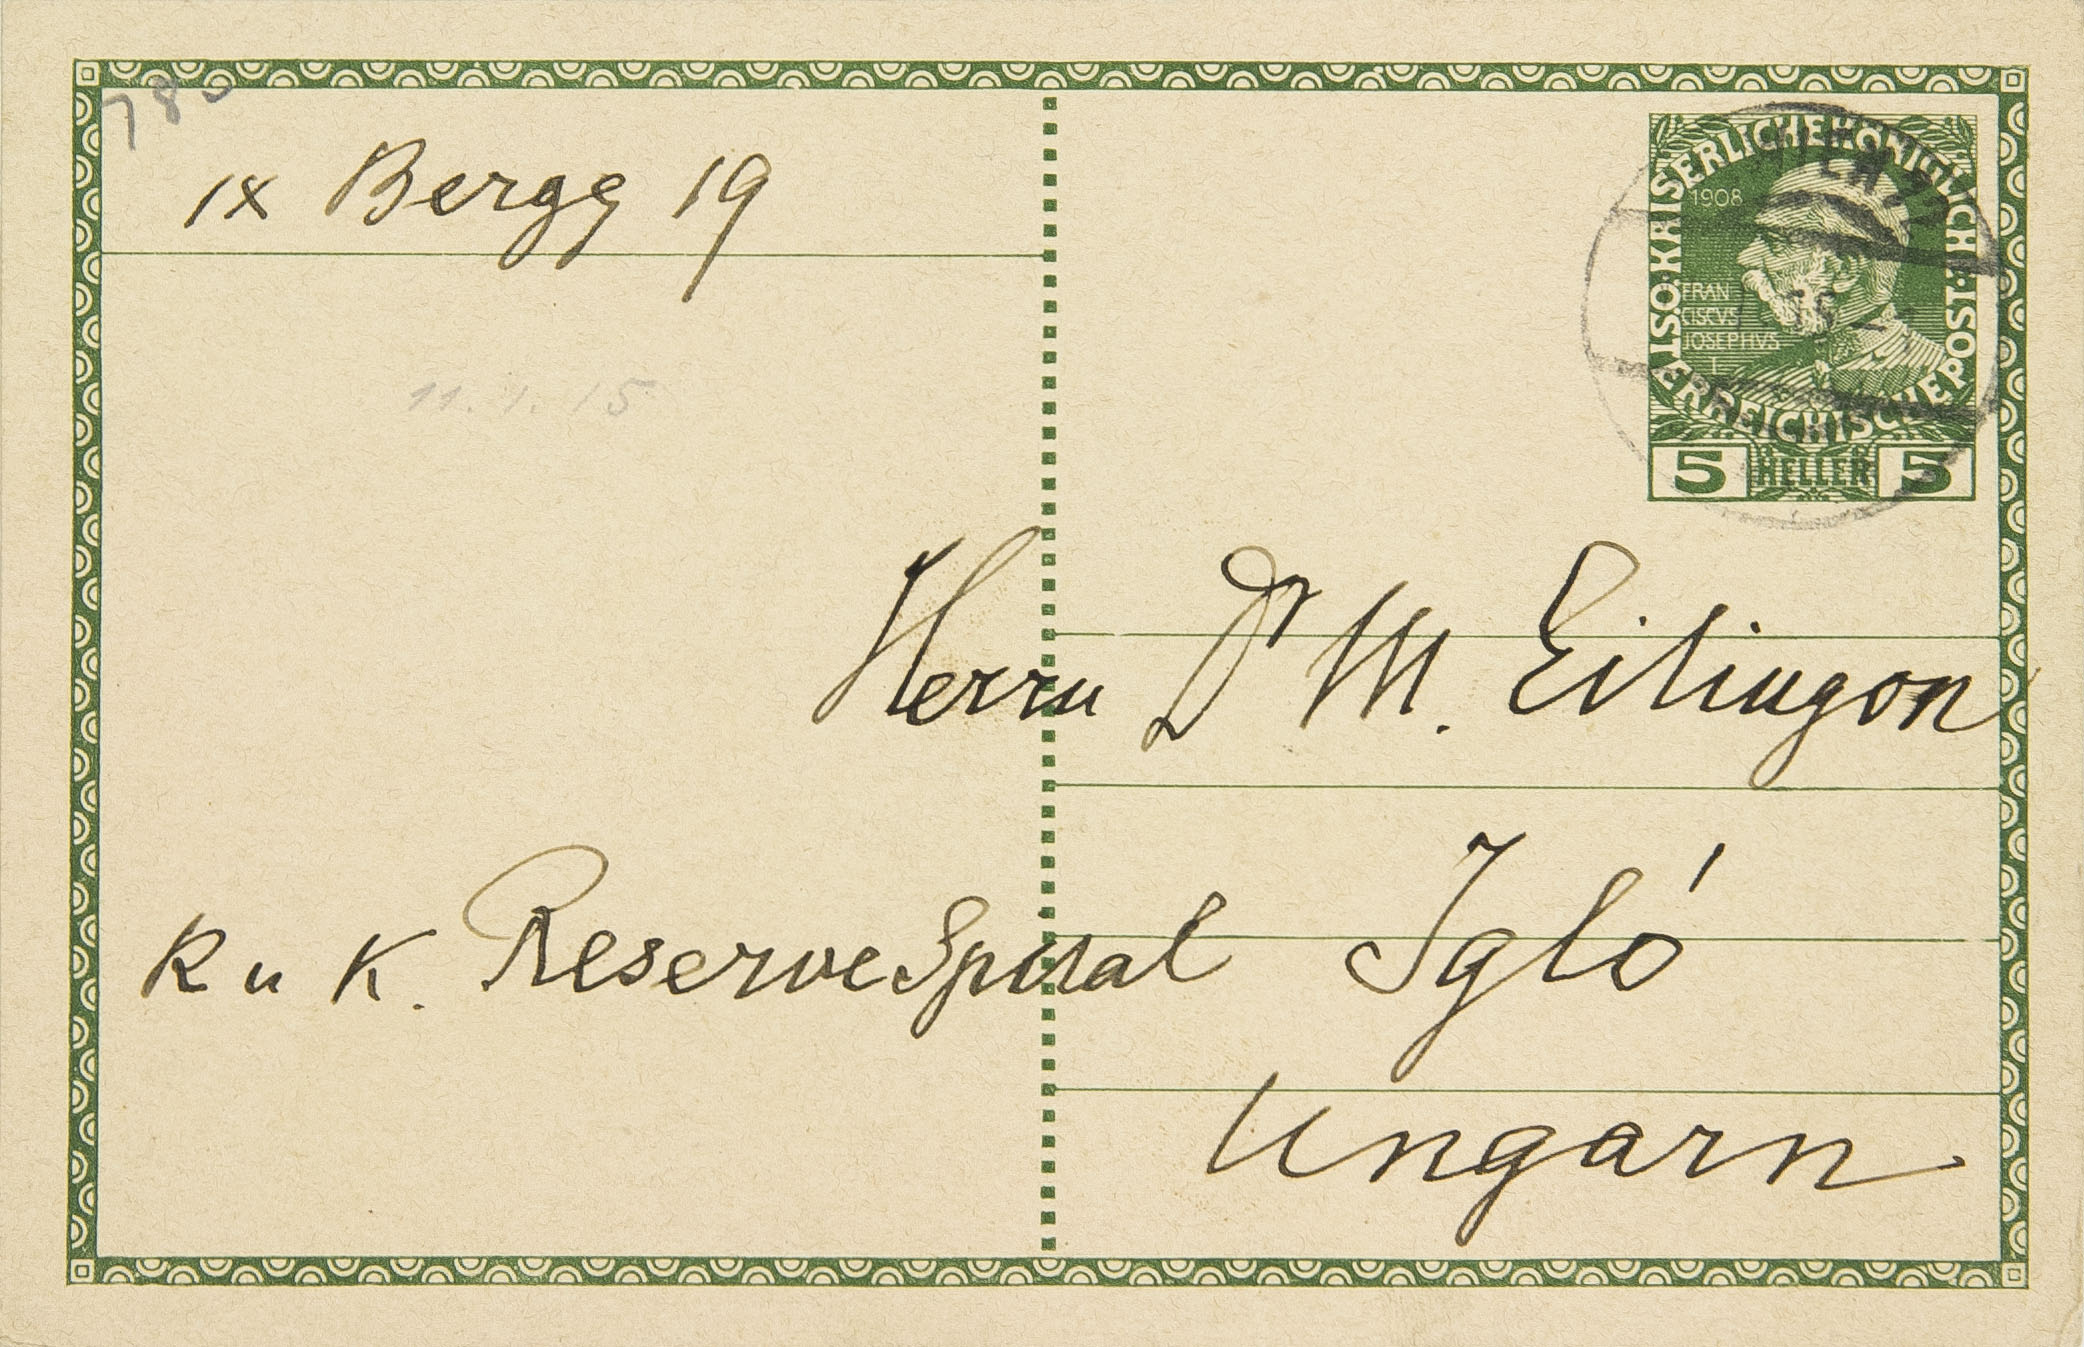 780
IX Bergg 19
11.1.15
KAISERLICHE KÖNIGLICHE ÖSTERREICHISCHE POST
1908
FRAN
CISCVS
JOSEPHVS
I
5 HELLER 5
WIEN
Herrn Dr M. Eitingon
K u K. ReserveSpital Igló
Ungarn